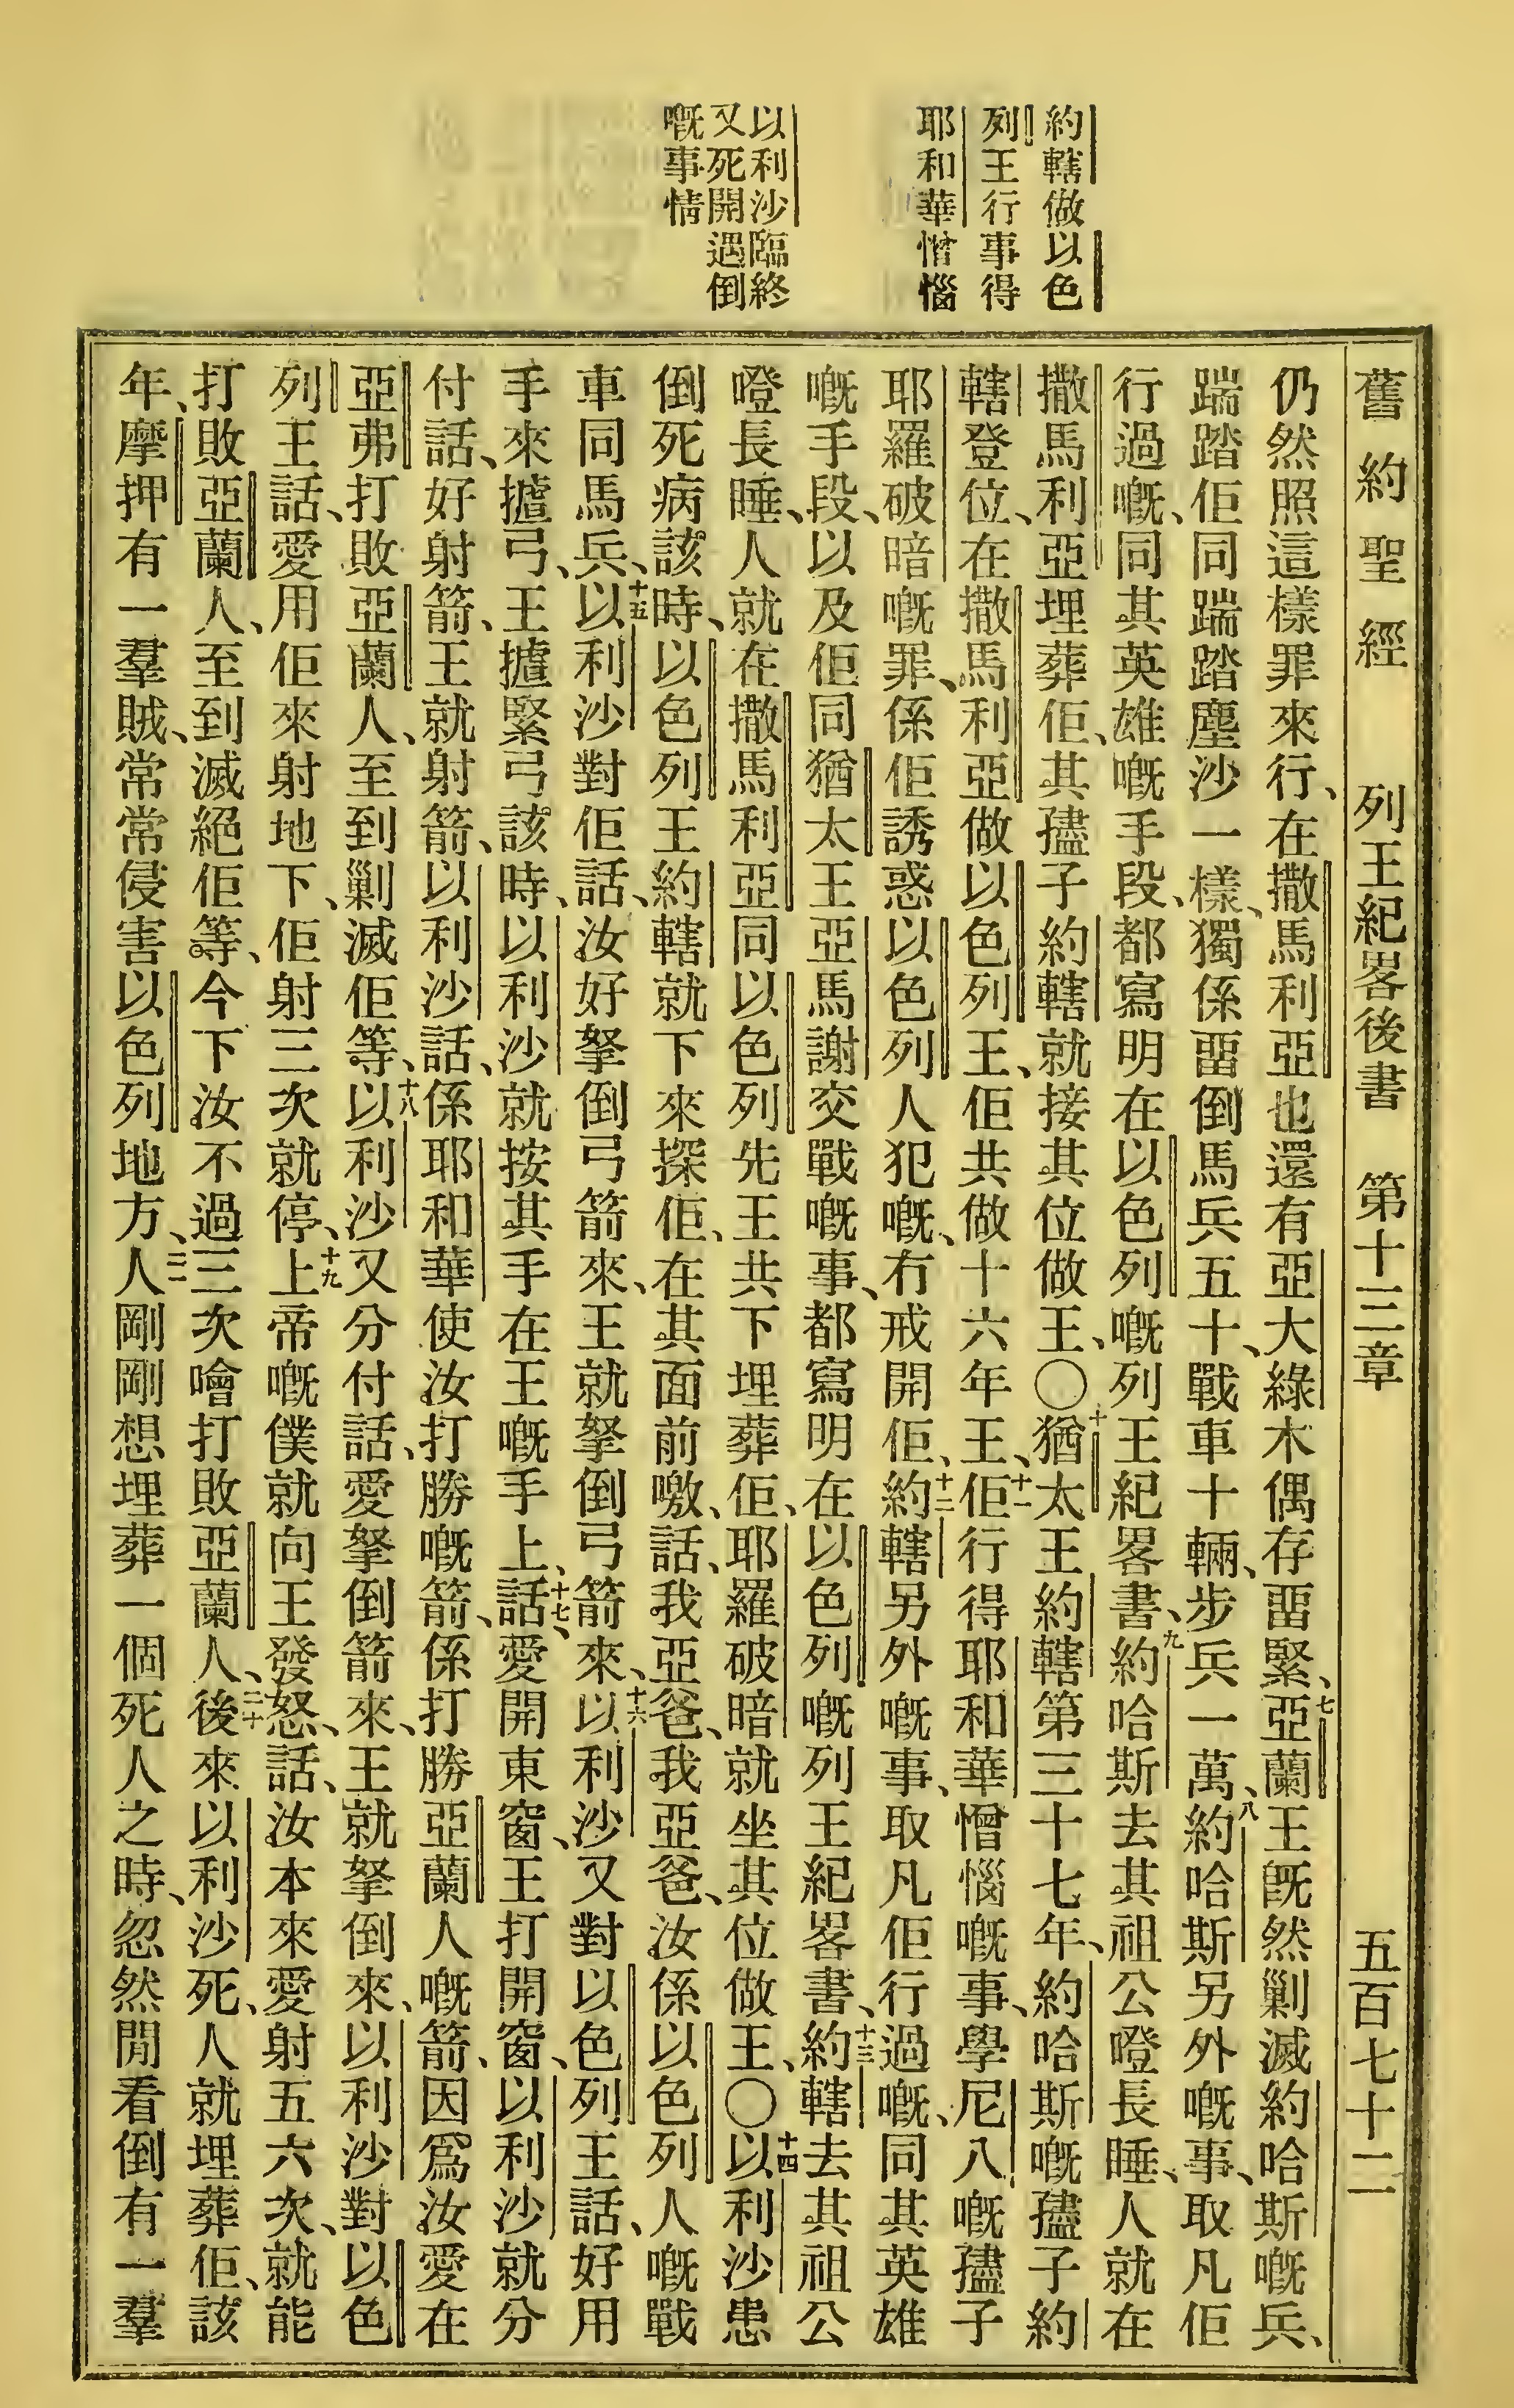 約轄做以色
列王行事得
耶和華憎惱
以利沙臨終
又死開遇倒
嘅事情
舊約聖經 列王紀畧後書 第十三章 五百七十二
仍然照這樣罪來行、在撒馬利亞也還有亞大綠木偶存畱緊、七亞蘭王旣然剿滅約哈斯嘅兵、
踹踏佢同踹踏塵沙一樣、獨係畱倒馬兵五十、戰車十輛、步兵一萬、八約哈斯另外嘅事、取凡佢
行過嘅、同其英雄嘅手段、都寫明在以色列嘅列王紀畧書、九約哈斯去其祖公嶝長睡、人就在
撒馬利亞埋葬佢、其孻子約轄就接其位做王、〇十猶太王約轄第三十七年、約哈斯嘅孻子約
轄登位、在撒馬利亞做以色列王、佢共做十六年王、十一佢行得耶和華憎惱嘅事、學尼八嘅孻子
耶羅破暗嘅罪、係佢誘惑以色列人犯嘅、冇戒開佢、十二約轄另外嘅事、取凡佢行過嘅、同其英雄
嘅手段、以及佢同猶太王亞馬謝交戰嘅事、都寫明在以色列嘅列王紀畧書、十三約轄去其祖公
嶝長睡、人就在撒馬利亞同以色列先王共下埋葬佢、耶羅破暗就坐其位做王、〇十四以利沙患
倒死病、該時、以色列王約轄就下來探佢、在其面前噭、話、我亞爸、我亞爸、汝係以色列人嘅戰
車同馬兵、十五以利沙對佢話、汝好拏倒弓箭來、王就拏倒弓箭來、十六以利沙又對以色列王話、好用
手來摣弓、王摣緊弓該時、以利沙就按其手在王嘅手上、十七話、愛開東窗、王打開窗、以利沙就分
付話、好射箭、王就射箭、以利沙話、係耶和華使汝打勝嘅箭、係打勝亞蘭人嘅箭、因爲汝愛在
亞弗打敗亞蘭人、至到剿滅佢等、十八以利沙又分付話、愛拏倒箭來、王就拏倒來、以利沙對以色
列王話、愛用佢來射地下、佢射三次就停、十九上帝嘅僕就向王發怒、話、汝本來愛射五六次、就能
打敗亞蘭人、至到滅絕佢等、今下汝不過三次噲打敗亞蘭人、二十後來以利沙死、人就埋葬佢、該
年、摩押有一羣賊、常常侵害以色列地方、二一人剛剛想埋葬一個死人之時、忽然閒看倒有一羣